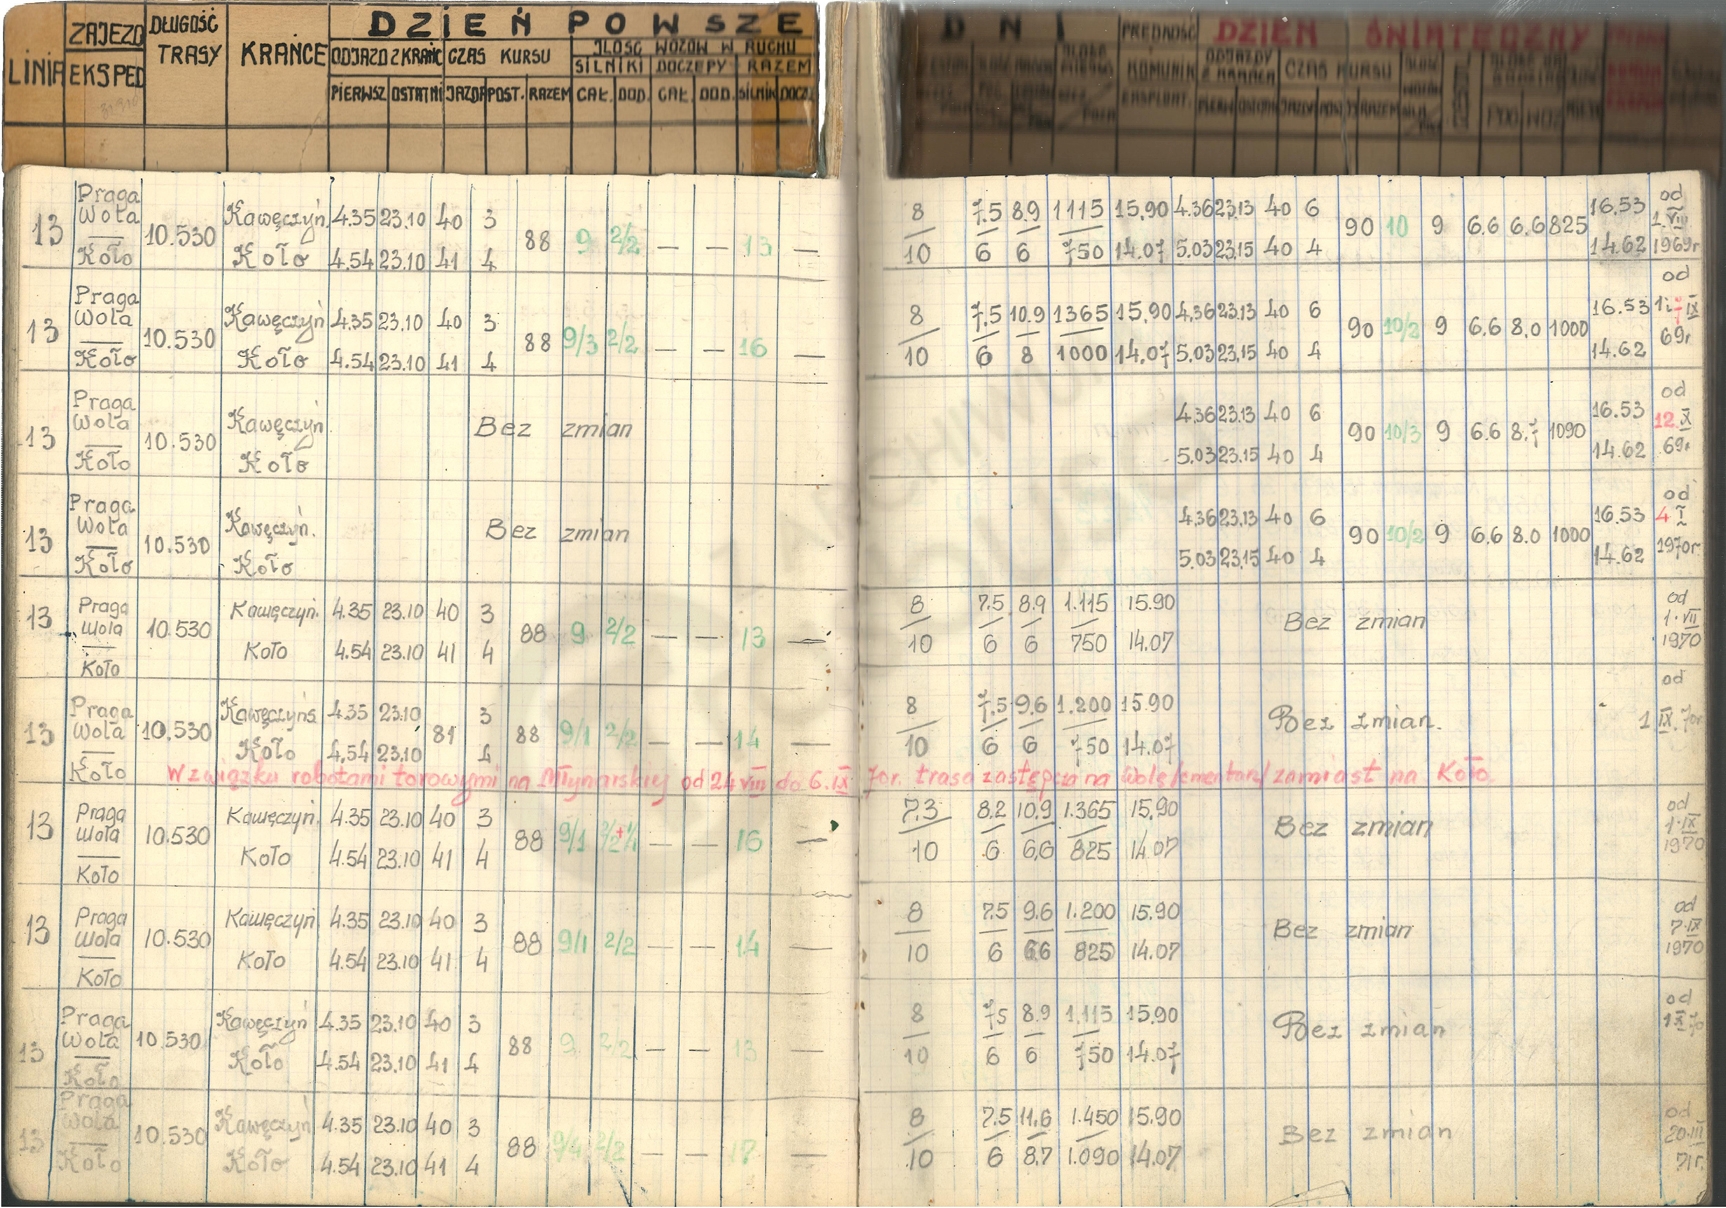 LINIA ZAJEZD EKSPED DŁUGOŚĆ TRASY KRAŃCE DZIEŃ POWSZE DNI DZIEŃ ŚWIĄTECZNY
ODJAZD Z KRAŃC CZAS KURSU ILOŚĆ WOZÓW W RUCHU PRĘDKOŚĆ KOMUNIK EKSPLOAT. ODJAZDY Z KRAŃCA CZAS KURSU
SILNIKI DOCZEPY RAZEM
PIERWSZ. OSTATNI JAZDA POST. RAZEM CAŁ. DOD. CAŁ. DOD. SILNIK DOCZ.
13 Praga Wola — Koło 10.530 Kawęczyń. 4.35 23.10 40 3 88 9 2/2 — — 13 — 8 7.5 8.9 1115 15.90 4.36 23.13 40 6 90 10 9 6.6 6.6 825 16.53 od 1.VIII 1969r.
Koło 4.54 23.10 41 4 10 6 6 750 14.07 5.03 23.15 40 4 14.62
13 Praga Wola — Koło 10.530 Kawęczyń 4.35 23.10 40 3 88 9/3 2/2 — — 16 — 8 7.5 10.9 1365 15.90 4.36 23.13 40 6 90 10/2 9 6.6 8.0 1000 16.53 od IX 69r
Koło 4.54 23.10 41 4 10 6 8 1000 14.07 5.03 23.15 40 4 14.62
13 Praga Wola — Koło 10.530 Kawęczyń Bez zmian 4.36 23.13 40 6 90 10/3 9 6.6 8.7 1090 16.53 od 12.X 69r
Koło 5.03 23.15 40 4 14.62
13 Praga Wola — Koło 10.530 Kawęczyń. Bez zmian 4.36 23.13 40 6 90 10/2 9 6.6 8.0 1000 16.53 od 4 I 1970r.
Koło 5.03 23.15 40 4 14.62
13 Praga Wola — Koło 10.530 Kawęczyń. 4.35 23.10 40 3 88 9 2/2 — — 13 — 8 7.5 8.9 1.115 15.90 Bez zmian od 1.VII 1970
Koło 4.54 23.10 41 4 10 6 6 750 14.07
13 Praga Wola — Koło 10.530 Kawęczyńs. 4.35 23.10 81 3 88 9/1 2/2 — — 14 — 8 7.5 9.6 1.200 15.90 Bez zmian. od 1 IX.70r.
Koło 4.54 23.10 4 10 6 6 750 14.07
W związku robotami torowymi na Młynarskiej od 24 VIII do 6.IX 70r. trasa zastępcza na Wolę/cmentarz/zamiast na Koło
13 Praga Wola — Koło 10.530 Kawęczyń. 4.35 23.10 40 3 88 9/1 — — 16 — 7.3 8.2 10.9 1.365 15.90 Bez zmian od 1.IX 1970
Koło 4.54 23.10 41 4 10 6 6.6 825 14.07
13 Praga Wola — Koło 10.530 Kawęczyń 4.35 23.10 40 3 88 9/1 2/2 — — 14 — 8 7.5 9.6 1.200 15.90 Bez zmian od 7.IX 1970
Koło 4.54 23.10 41 4 10 6 6.6 825 14.07
13 Praga Wola — Koło 10.530 Kawęczyń 4.35 23.10 40 3 88 9 2/2 — — 13 — 8 7.5 8.9 1.115 15.90 Bez zmian od 1 X 70
Koło 4.54 23.10 41 4 10 6 6 750 14.07
13 Praga Wola — Koło 10.530 Kawęczyń 4.35 23.10 40 3 88 9/4 2/2 — — 17 — 8 7.5 11.6 1.450 15.90 Bez zmian od 20.III 71r.
Koło 4.54 23.10 41 4 10 6 8.7 1.090 14.07